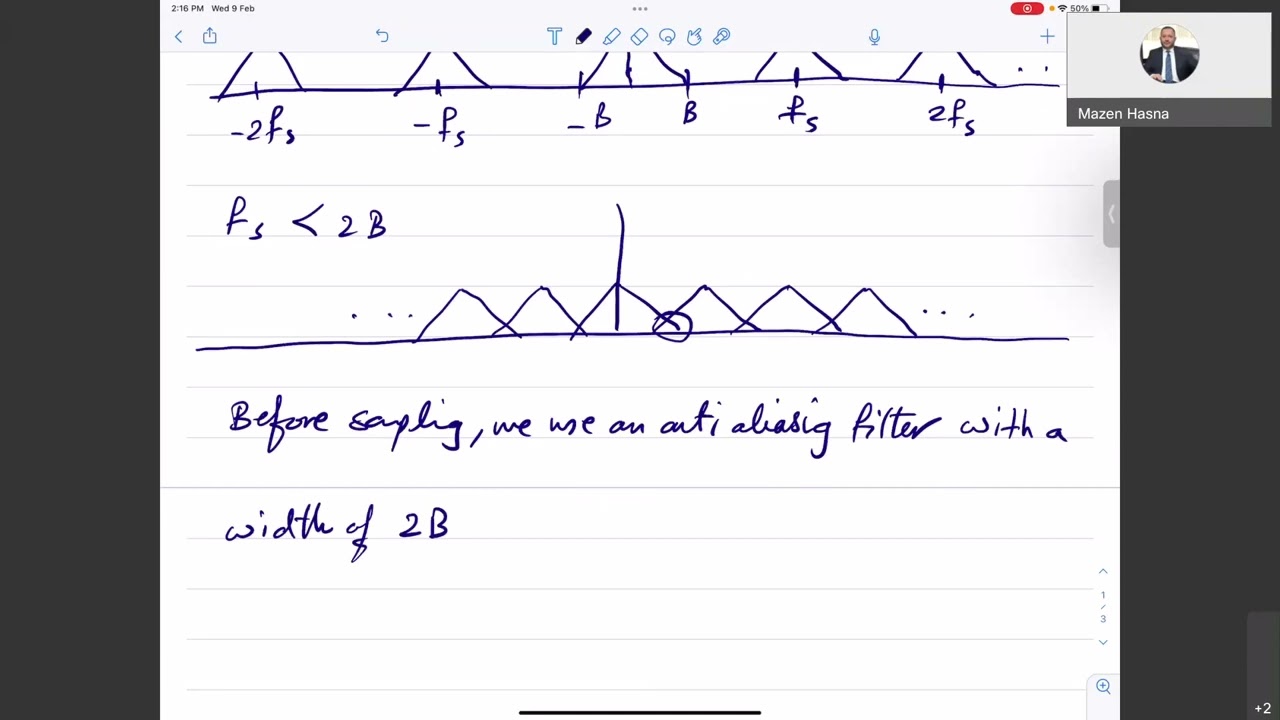 2:16 PM Wed 9 Feb
50%
Mazen Hasna
-2fs -fs -B B fs 2fs ..
fs < 2B
.... ...
Before samplig, we use an anti aliasig filter with a
width of 2B
1
/
3
+2